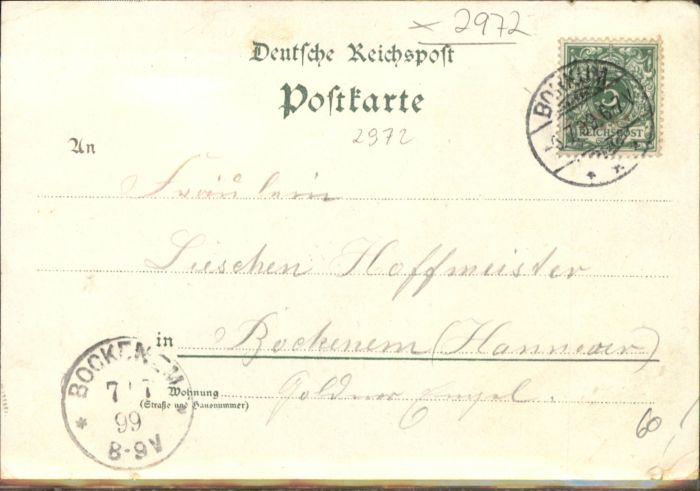 × 2972
Deutsche Reichspost
Postkarte
2972
5
REICHSPOST
An
Fräulein
Lieschen Hoffmeister
in Bockenem (Hannover)
Wohnung
(Straße und Hausnummer)
Goldner Engel.
BOCKENEM
7 7
99
8-9V
60